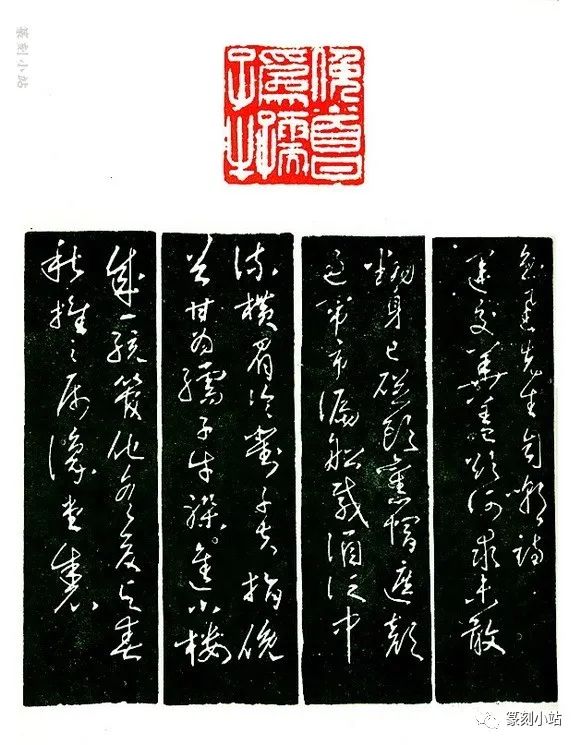 篆刻小站
俛首甘
為孺
子牛
魯迅先生自嘲詩
運交華蓋欲何求未敢
翻身已碰頭舊帽遮顏
過鬧市漏船載酒泛中
流橫眉冷對千夫指俛
首甘为孺子牛躲進小樓
成一統管他冬夏与春
秋 之属豫堂
篆刻小站